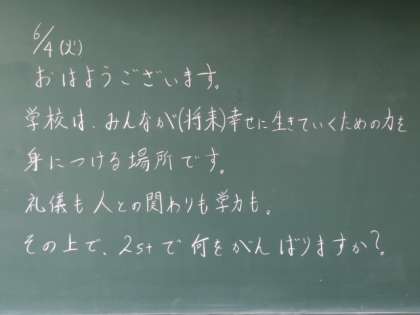 6/4(火)
おはようございます。
学校は、みんなが(将来)幸せに生きていくための力を
身につける場所です。
礼儀も人との関わりも学力も。
その上で、2stで何をがんばりますか?